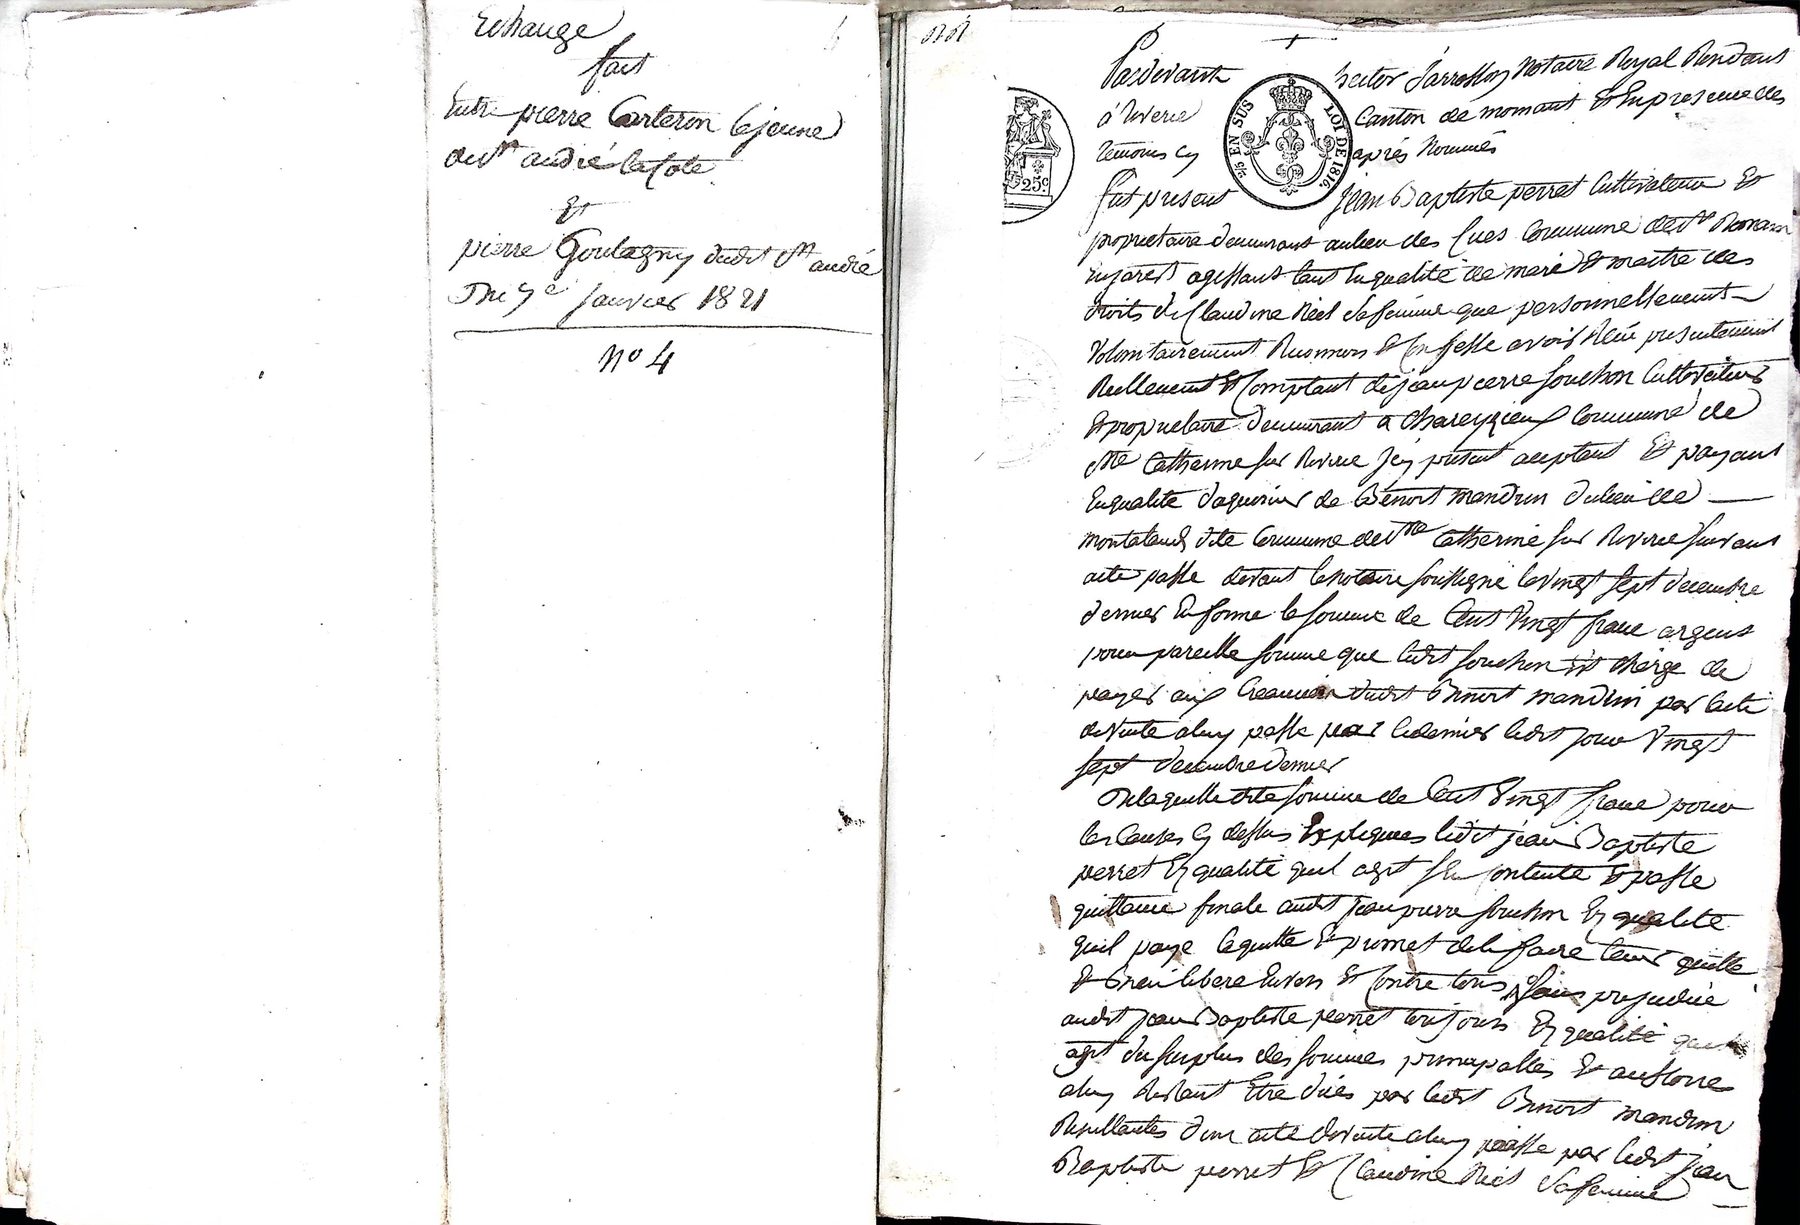 Echange
fait
Entre pierre Carteron le jeune
de St andré la Cote
Et
pierre Goulagny dudit St andré
Du 7e Janvier 1821
No 4
Pardevant hector Jarrosson Notaire Royal Residant
à Riverie Canton de mornant Et En presence des
temoins cy après Nommés
fut present Jean Baptiste perret Cultivateur Et
proprietaire demeurant au lieu des Rues Commune de St Romain
En jarest agissant tant En qualité de mari Et maitre des
droits de Claudine Riel sa femme que personnellement
Volontairement Reconnoit Et Confesse avoir Reçu presentement
Reellement Et Comptant de jean pierre souchon Cultivateur
Et proprietaire demeurant a Chareyzieux Commune de
Ste Catherine sur Riverie icy present acceptant Et payant
En qualité d'aquereur de Benoit mandrin du lieu de
dite Commune de Ste Catherine sur Riverie suivant
acte passé devant le notaire soussigné le vingt sept decembre
dernier En forme la somme de Cent Vingt franc argent
pour pareille somme que ledit souchon fut chargé de
payer aux Creanciers dudit Benoit mandrin par l'acte
de vente a luy passé par ce dernier ledit jour Vingt
sept decembre dernier
De laquelle dite somme de Cent Vingt franc pour
les Causes cy dessus Expliquées ledit jean Baptiste
perret En qualité quil agit sen contente Et passe
quittance finale audit jean pierre souchon En qualité
quil paye laquelle Et promet de le faire tenir quitte
Et Bien libere Envers Et Contre tous sans prejudice
audit jean Baptiste perret toujours En qualité quil
agit du surplus des sommes principalles Et accessoires
a luy Restant Etre dües par ledit Benoit mandrin
Resultantes d'un acte de vente a luy passé par ledit jean
Baptiste perret Et Claudine Riel sa femme
5/2 EN SUS LOI DE 1816.
25c